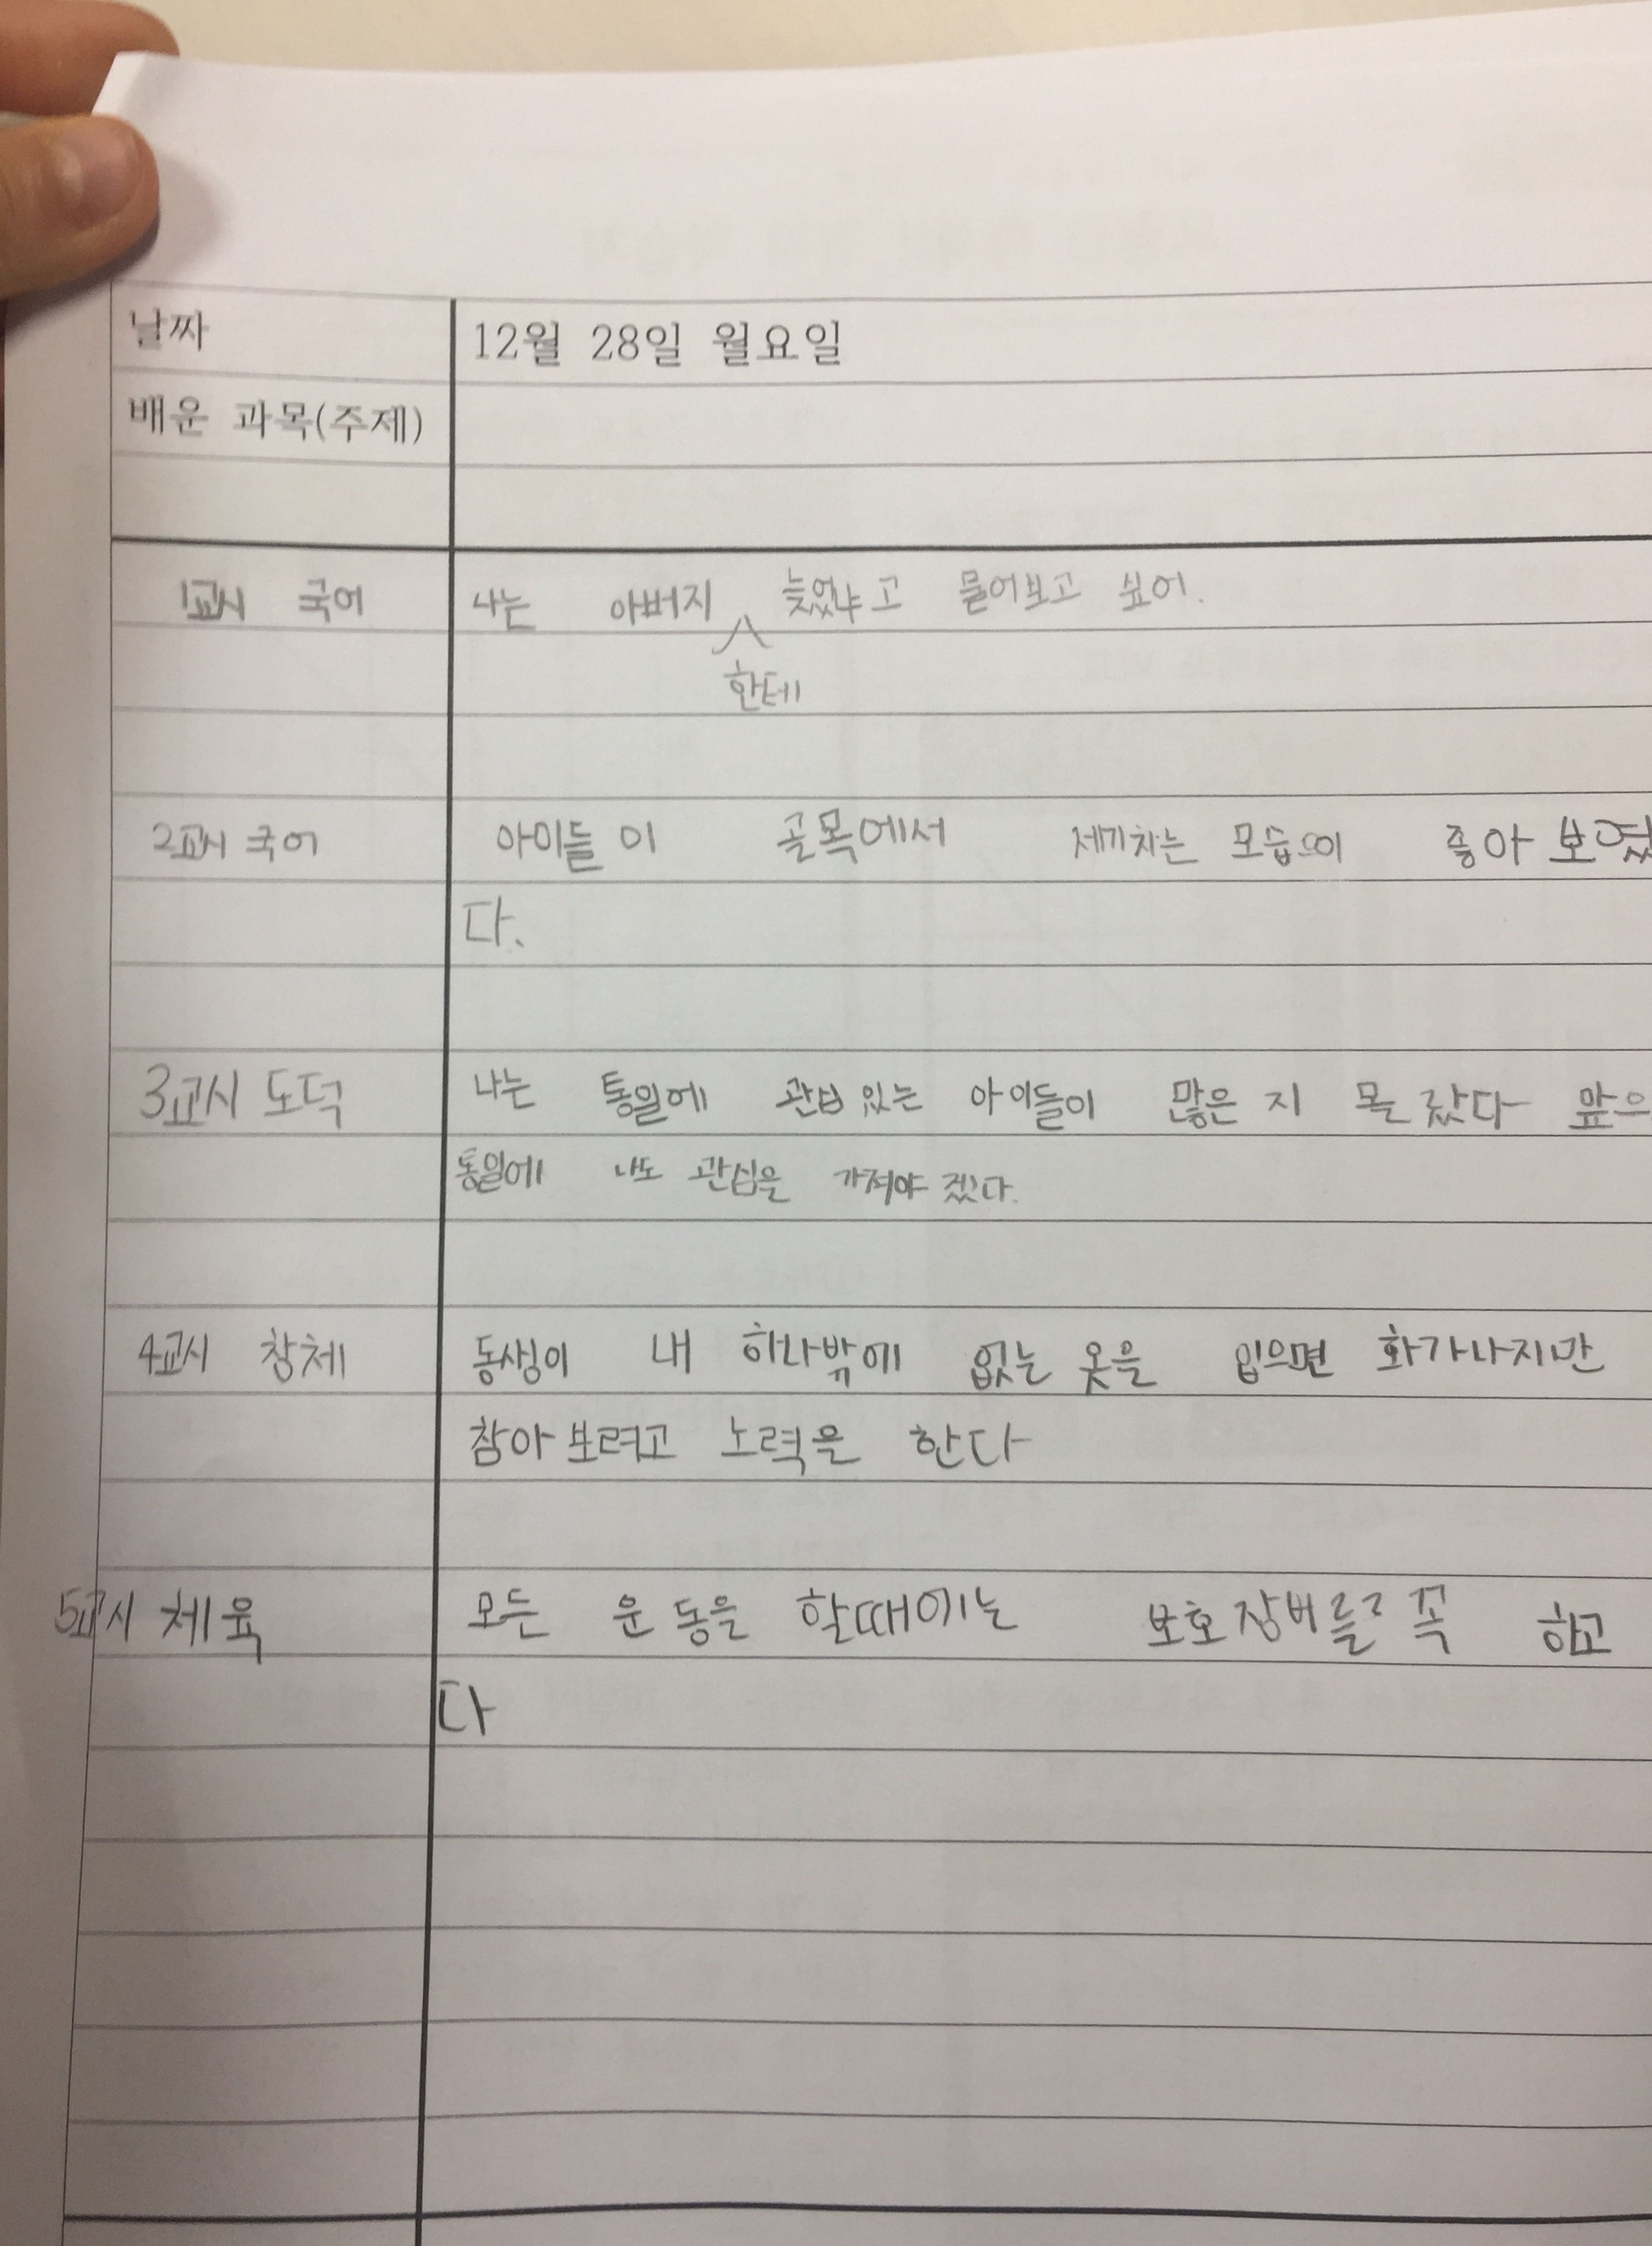 날짜 12월 28일 월요일
배운 과목(주제)
1교시 국어 나는 아버지 늦었냐고 물어보고 싶어.
한테
2교시 국어 아이들이 골목에서 제기차는 모습이 좋아 보였
다.
3교시 도덕 나는 통일에 있는 아이들이 많은지 몰랐다 앞으
통일에 나도 관심을 가져야 겠다.
4교시 창체 동생이 내 하나밖에 없는 옷을 입으면 화가나지만
참아보려고 노력을 한다
5교시 체육 모든 운동을 할때에는 보호장비를 꼭 하고
다